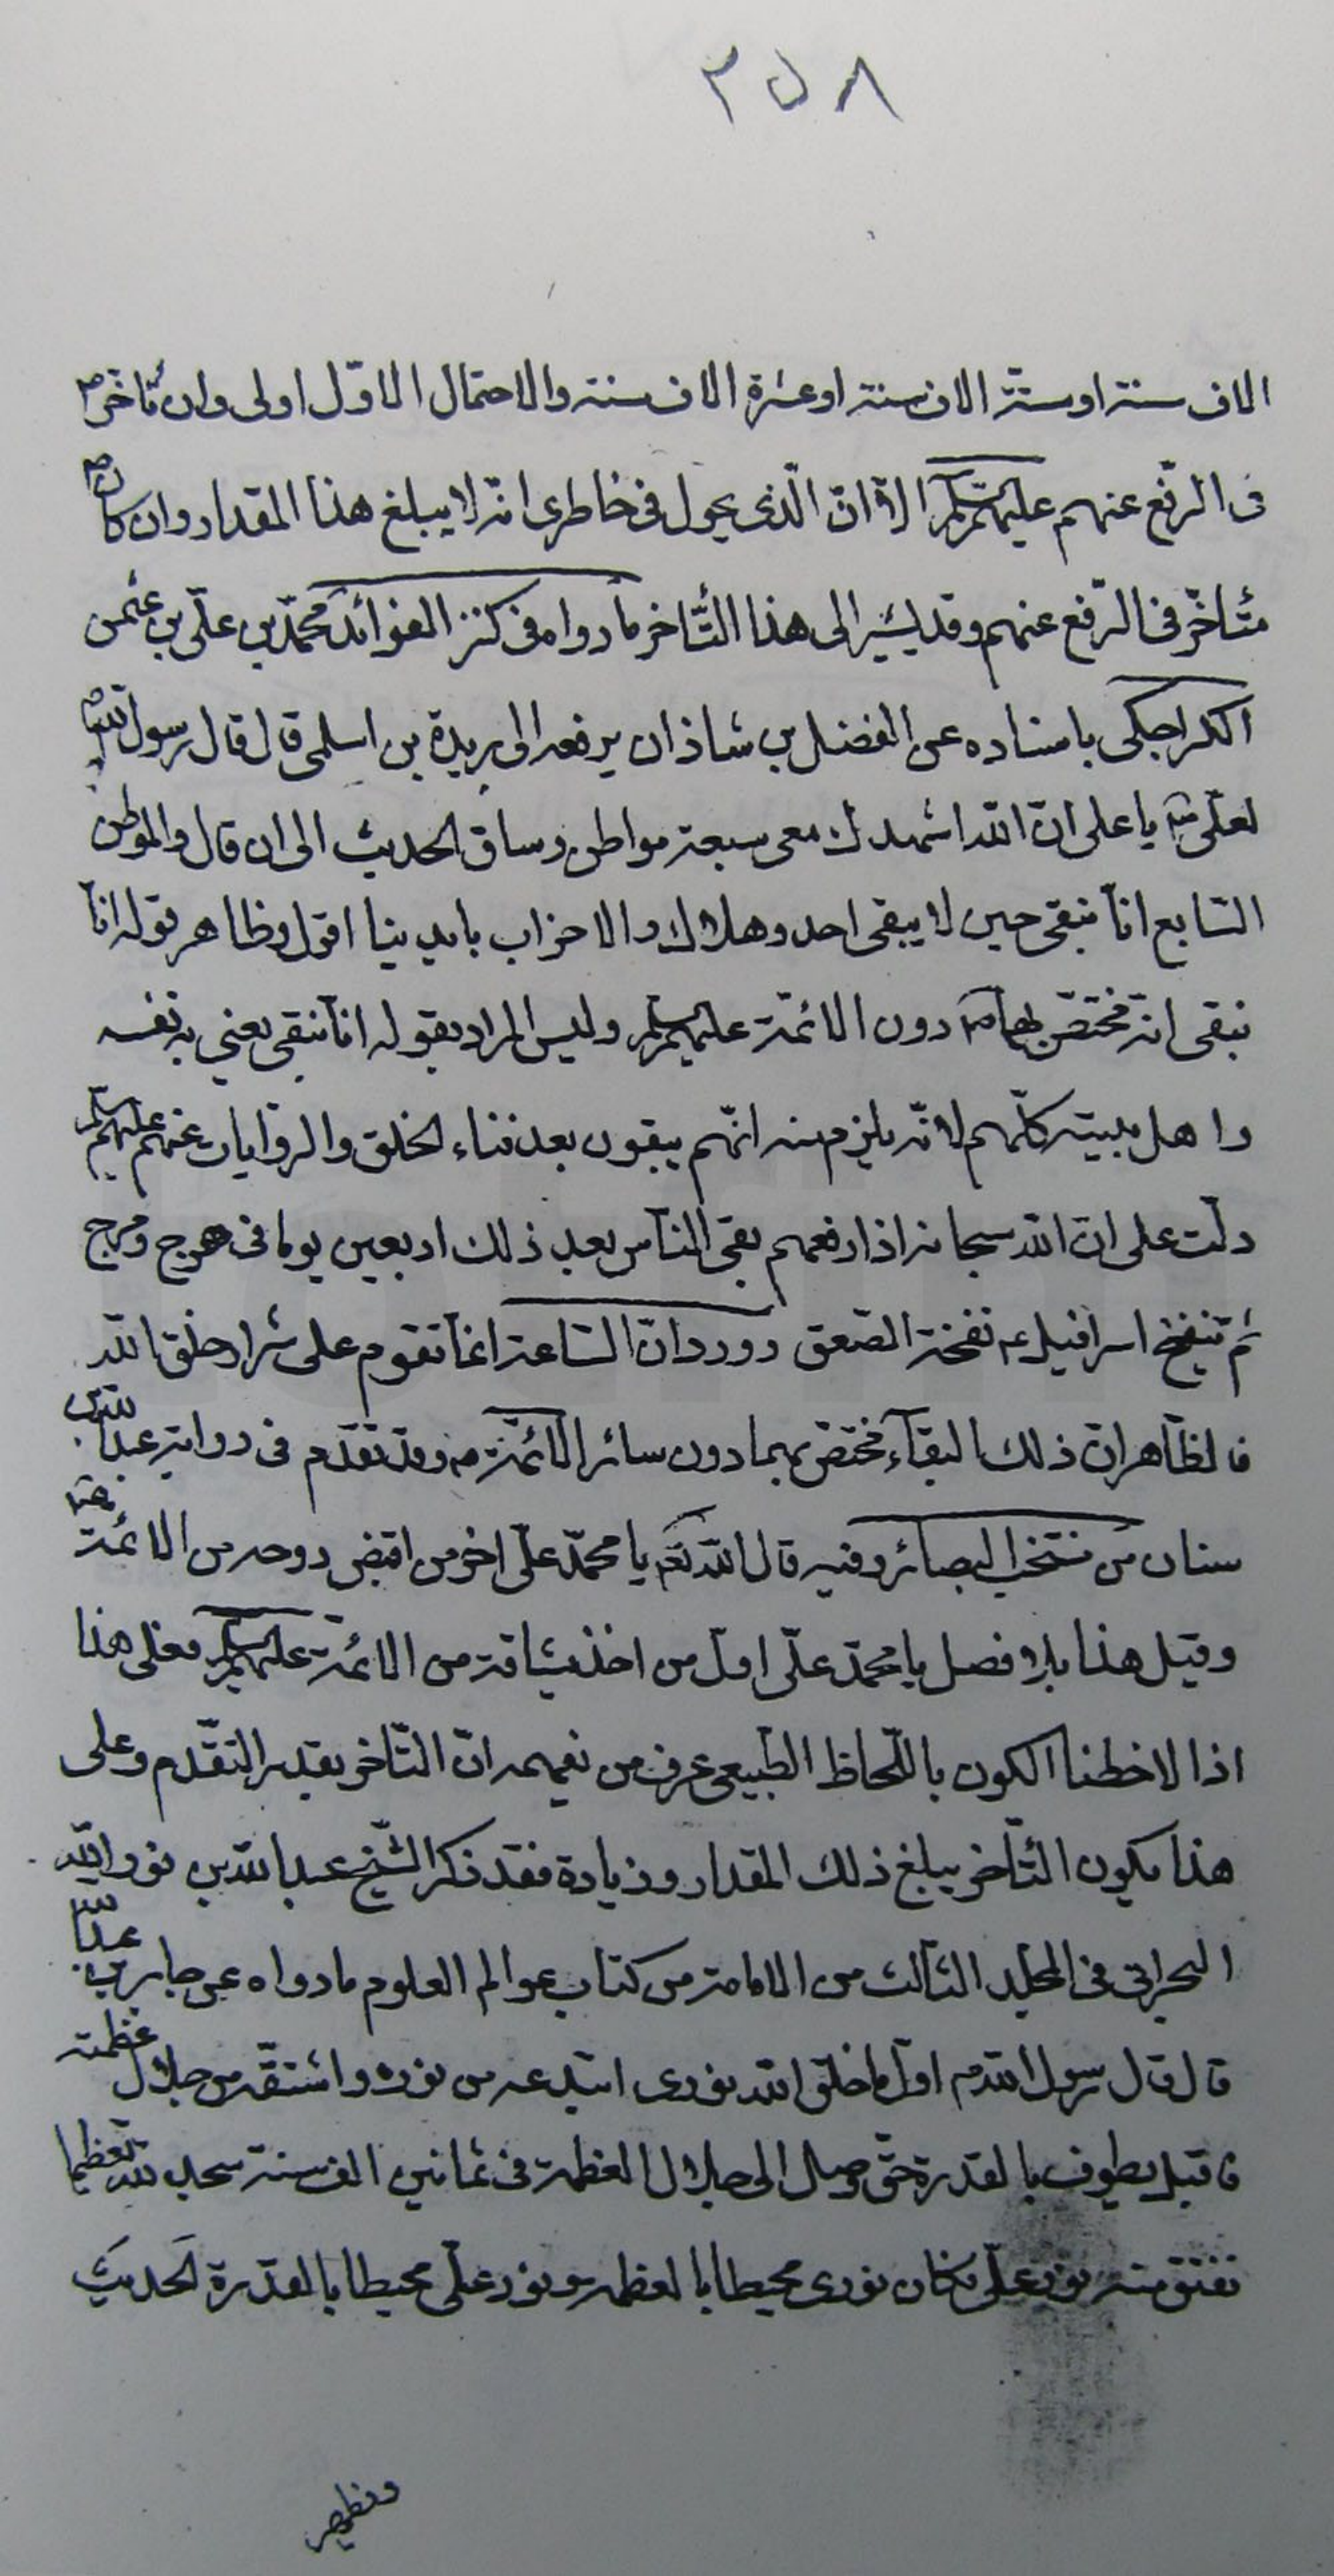 ٣٥٨
الاف سنة او ستة الاف سنة او عشرة الاف سنة والاحتمال الاوّل اولى وان تأخّر ص
فى الرّفع عنهم عليهم السلم الاّ انّ الّذى يجول فى خاطرى انّه لا يبلغ هذا المقدار وان كان ص
متأخّر فى الرّفع عنهم وقد يشير الى هذا التّأخر ما رواه فى كنز الفوائد محمّد بن علىّ بن عثمن
الكراجكى باسناده عن الفضل بن شاذان يرفعه الى بريدة بن اسلمى قال قال رسول الله ص
لعلىّ يا على انّ الله اشهدك معى سبعة مواطن وساق الحديث الى ان قال والموطن
السّابع انّا نبقى حين لا يبقى احد وهلاك الاحزاب بايدينا اقول وظاهر قوله انّا
نبقى انّه مختصّ بهما دون الائمّة عليهم السلم وليس المراد بقوله انّا نبقى يعنى به نفسه
واهل بيته كلّهم لانّه يلزم منه انّهم يبقون بعد فناء الخلق والرّوايات عنهم عليهم السلم
دلّت على انّ الله سبحانه اذا رفعهم بقى النّاس بعد ذلك اربعين يوما فى هرج ومرج
ثم ينفخ اسرافيل ع نفخة الصّعق وورد انّ السّاعة انّما تقوم على شرار خلق الله
فالظّاهر انّ ذلك البقآء مختصّ بهما دون سائر الائمّة ع وقد تقدّم فى رواية عبد الله بن
سنان من منتخب البصائر وفيه قال الله تع يا محمّد علىّ اخر من اقبض روحه من الائمّة
وقبل هذا بلا فصل يا محمّد علىّ اوّل من اخذ ميثاقه من الائمّة عليهم السلم فعلى هذا
اذا لاحظنا الكون باللّحاظ الطّبيعى عرف من نعيمه انّ التّأخر بقدر التقّدم وعلى
هذا يكون التّأخر يبلغ ذلك المقدار وزيادة فقد ذكر الشّيخ عبد الله بن نور الله
البحرانى فى المجلّد الثّالث من الامامة من كتاب عوالم العلوم ما رواه عن جابر بن عبد الله
قال قال رسول الله ص اوّل ما خلق الله نورى ابتدعه من نوره واشتقّه من جلال عظمته
فاقبل يطوف بالقدرة حتّى وصل الى جلال العظمة فى ثمانين الف سنة سجد لله تعظيما
تفتق منه نور علىّ فكان نورى محيطا بالعظمة ونور علىّ محيطا بالقدرة الحديث